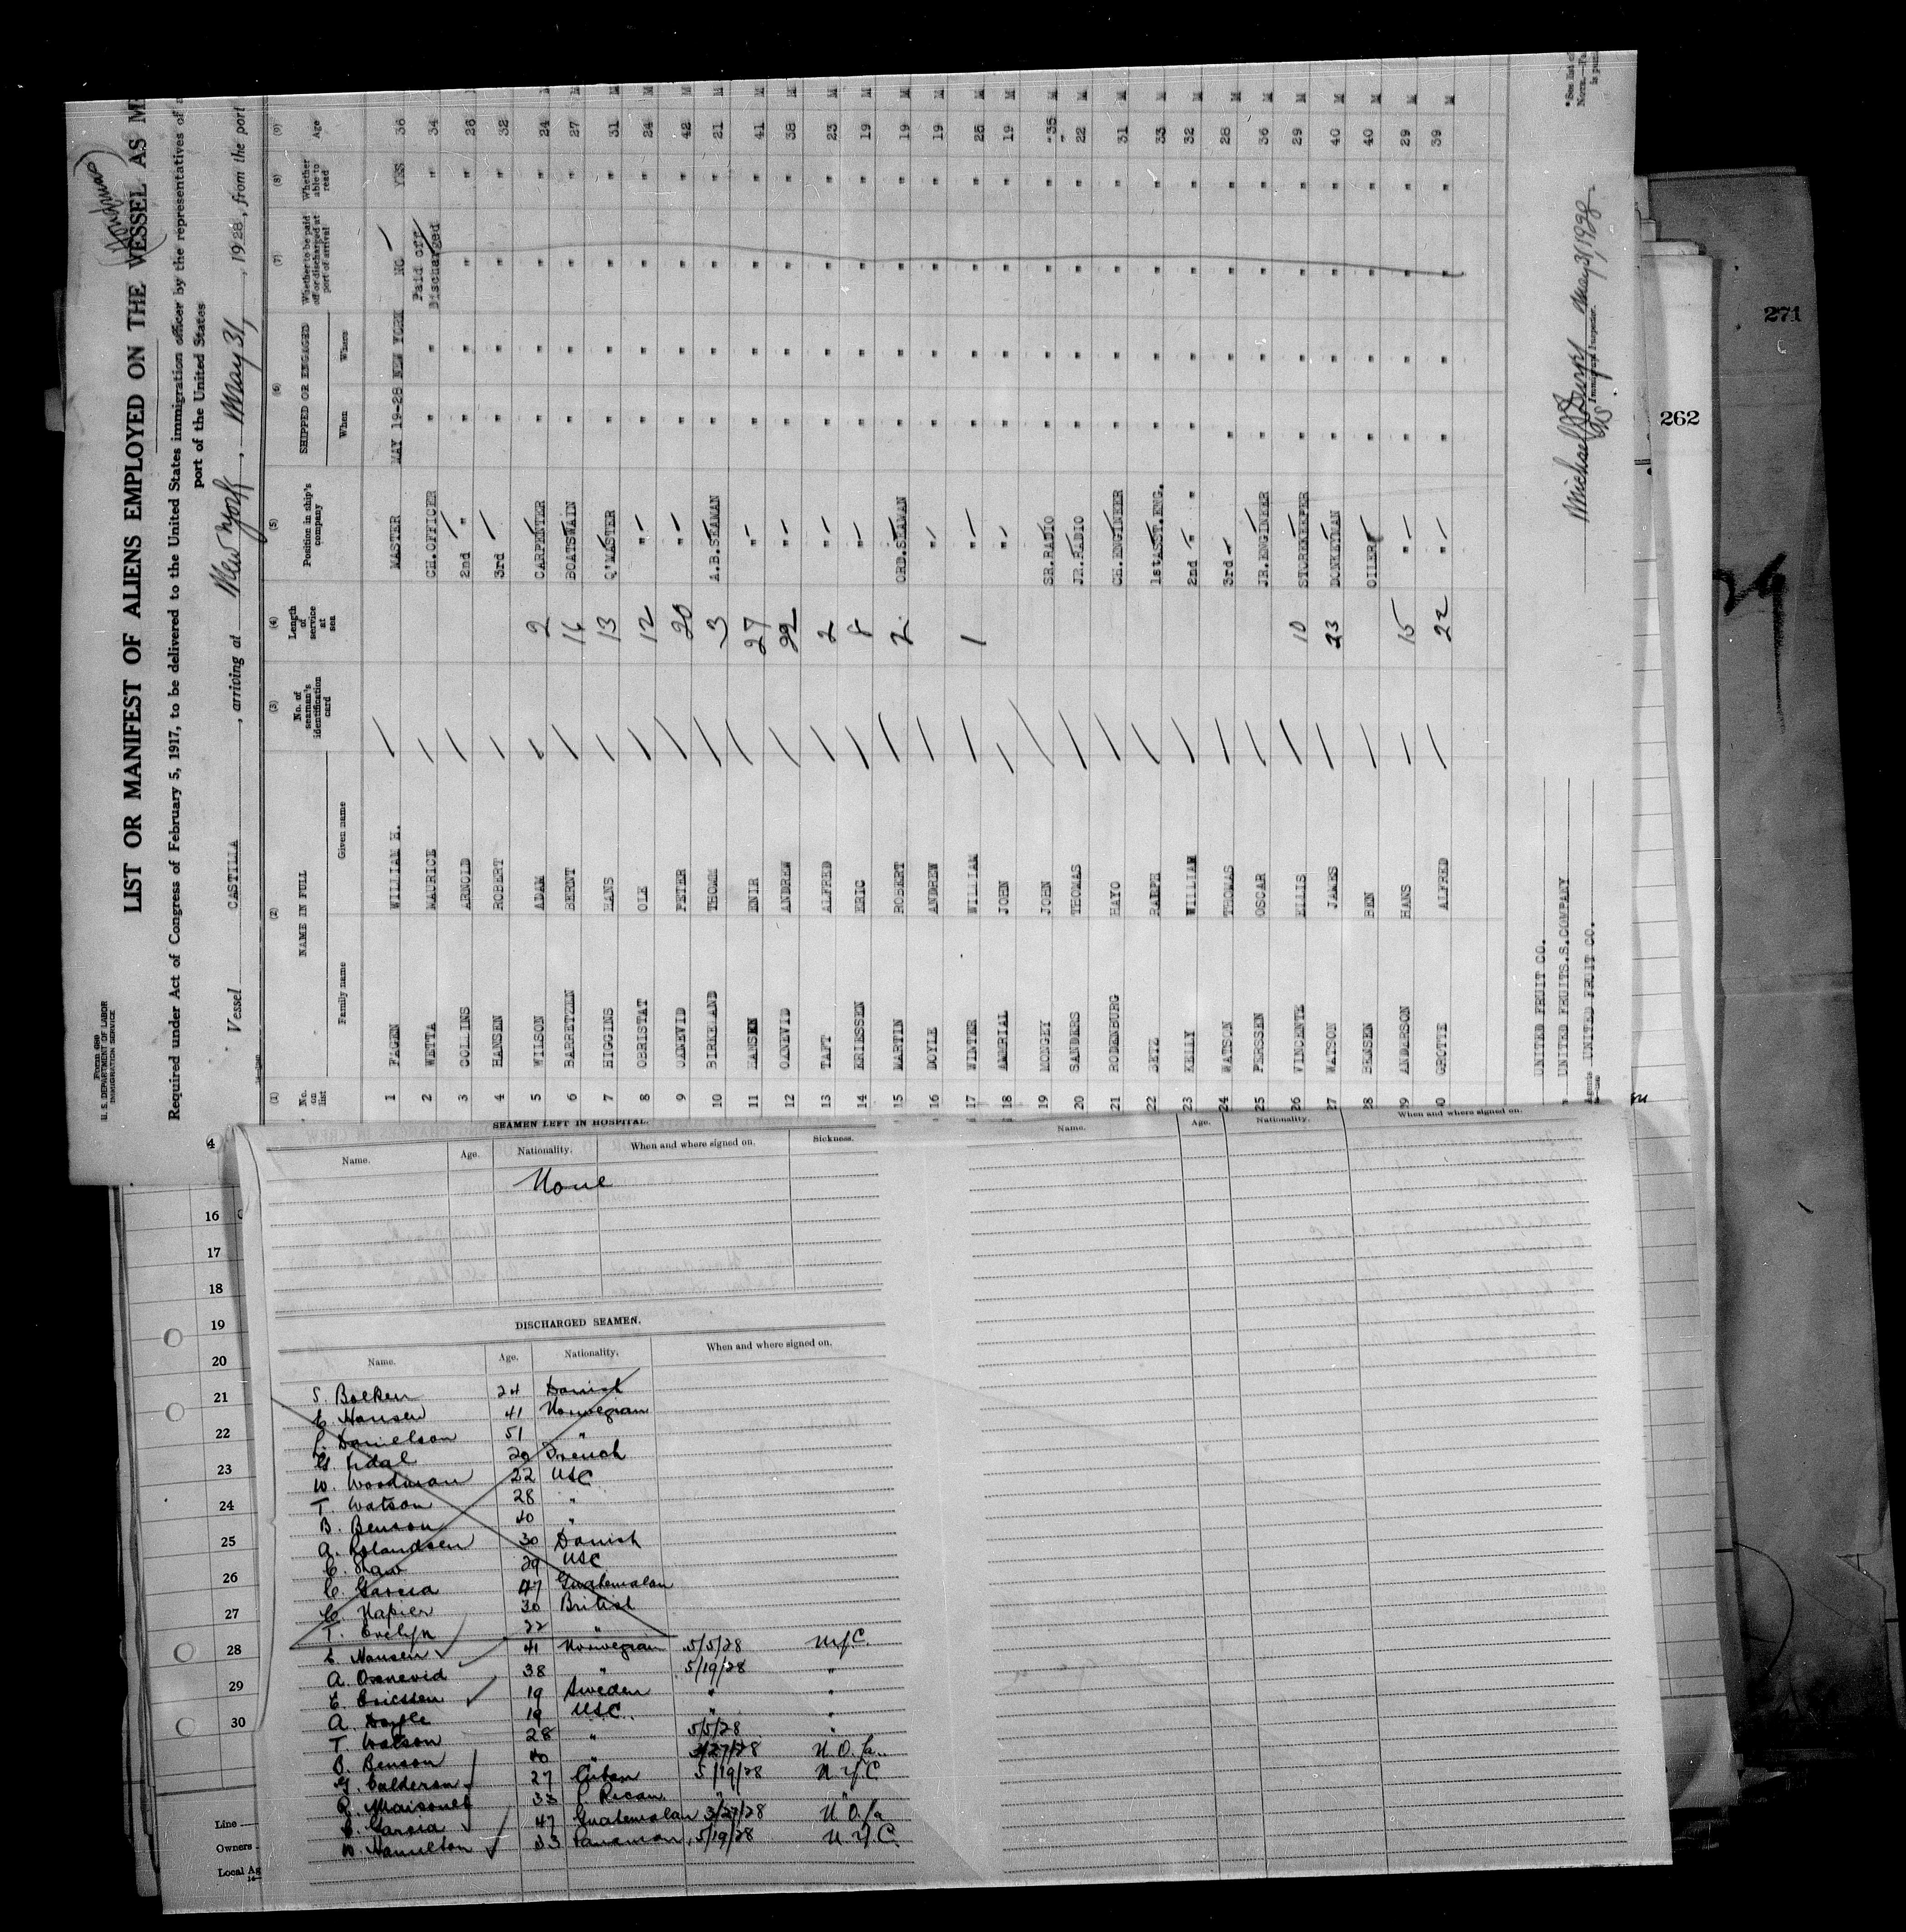 Form 689
U. S. DEPARTMENT OF LABOR
IMMIGRATION SERVICE
(Honduras)
LIST OR MANIFEST OF ALIENS EMPLOYED ON THE VESSEL AS M
Required under Act of Congress of February 5, 1917, to be delivered to the United States immigration officer by the representatives of a
port of the United States
Vessel CASTILLA, arriving at New York, May 31, 1928, from the port
(1) (2) (3) (4) (5) (6) (7) (8) (9)
No. on list NAME IN FULL No. of seaman's identification card Length of service at sea Position in ship's company SHIPPED OR ENGAGED Whether to be paid off or discharged at port of arrival Whether able to read Age
Family name Given name When Where
1 FAGEN WILLIAM H. MASTER MAY 19-28 NEW YORK NO YES 36
2 WETTA MAURICE CH.OFFICER " " Paid off Discharged " 34 M
3 COLLINS ARNOLD 2nd " " " " " 26
4 HANSEN ROBERT 3rd " " " " 32
5 WILSON ADAM 2 CARPENTER " " " " 24 M
6 BARRETZEN BERNT 16 BOATSWAIN " " " " 27 M
7 HIGGINS HANS 13 Q'MASTER " " " " 31 M
8 OBRISTAT OLE 12 " " " " " 24 M
9 OANEVID PETER 20 " " " " " 42 M
10 BIRKELAND THOMM 3 A.B.SEAMAN " " " " 21 M
11 HANSEN ENIR 27 " " " " " 41 M
12 OANEVID ANDREW 22 " " " " " 38 M
13 TAFT ALFRED 2 " " " " " 23 M
14 ERIESSEN ERIC 8 " " " " " 19 M
15 MARTIN ROBERT 2 ORD.SEAMAN " " " " 19 M
16 DOYLE ANDREW " " " " " 19 M
17 WINTER WILLIAM 1 " " " " " 25 M
18 AMBRIAL JOHN " " " " " 19 M
19 MONGEY JOHN SR.RADIO " " " " 35 M
20 SANDERS THOMAS JR.RADIO " " " " 22 M
21 RODENBURG HAYO CH.ENGINEER " " " " 31 M
22 BETZ RALPE 1stASST.ENG. " " " " 33 M
23 KELLY WILLIAM 2nd " " " " " " 32 M
24 WATSON THOMAS 3rd " " " " 28 M
25 PERSSEN OSCAR JR.ENGINEER " " " " 36 M
26 VINCENTE ELLIS 10 STOREKEEPER " " " " 29 M
27 WATSON JAMES 23 DONKEYMAN " " " " 40 M
28 BENSEN BEN OILER " " " " 40 M
29 ANDERSON HANS 15 " " " " " 29 M
0 GROTTE ALFRED 22 " " " " " 39 M
UNITED FRUIT CO.
UNITED FRUITS.S.COMPANY
Agents UNITED FRUIT CO.
Immigrant Inspector.
May 31, 1928
*See list of
271
262
4
16
17
18
19
20
21
22
23
24
25
26
27
28
29
30
Line
Owners
Local Ag
SEAMEN LEFT IN HOSPITAL.
Name. Age. Nationality. When and where signed on. Sickness.
None
DISCHARGED SEAMEN.
Name. Age. Nationality. When and where signed on.
S. Bolken 24 Danish
E. Hansen 41 Norwegian
Danielson 51 "
G. Vidal 29 French
W. Woodman 22 USC
T. Watson 28 "
B. Benson 40 "
A. Rolandsen 30 Danish
C. Haw 29 USC
C. Garcia 47 Guatemalan
C. Napier 30 British
T. Evelyn 22 "
E. Hansen 41 Norwegian 5/5/28 NYC.
A. Oanevid 38 " 5/19/28 "
E. Ericssen 19 Sweden " "
A. Doyle 19 USC. " "
T. Watson 28 " 5/5/28 "
B. Benson 40 " 3/27/28 N.O. La.
G. Calderon 27 Cuban 5/19/28 N.Y.C
R. Maisonet 33 P. Rican " "
C. Garcia 47 Guatemalan 3/27/28 N.O. La
W. Hamilton 33 Panaman 5/19/28 N.Y.C.
Name. Age. Nationality. When and where signed on.